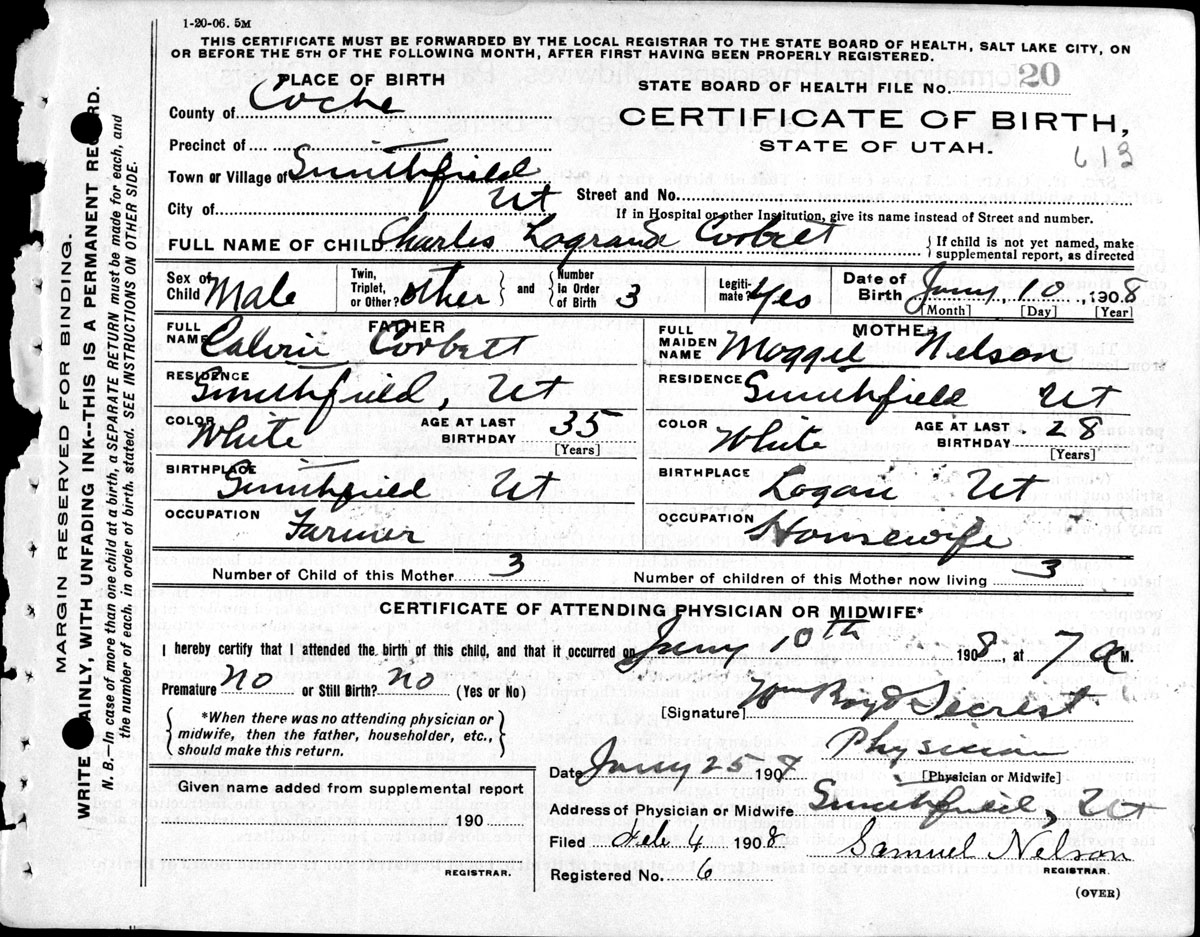 1-20-06. 5M
THIS CERTIFICATE MUST BE FORWARDED BY THE LOCAL REGISTRAR TO THE STATE BOARD OF HEALTH, SALT LAKE CITY, ON
OR BEFORE THE 5TH OF THE FOLLOWING MONTH, AFTER FIRST HAVING BEEN PROPERLY REGISTERED.
PLACE OF BIRTH
County of Cache
Precinct of
Town or Village of Smithfield
City of Ut
STATE BOARD OF HEALTH FILE No. 20
CERTIFICATE OF BIRTH,
STATE OF UTAH.
613
Street and No.
If in Hospital or other Institution, give its name instead of Street and number.
FULL NAME OF CHILD Charles Lagrand Corbett
{ If child is not yet named, make supplemental report, as directed
Sex of Child Male
Twin, Triplet, or Other? other } and { Number in Order of Birth 3
Legiti-mate? Yes
Date of Birth Jany 10, 1908
[Month] [Day] [Year]
FATHER
FULL NAME Calvin Corbett
RESIDENCE Smithfield, Ut
COLOR White AGE AT LAST BIRTHDAY 35
[Years]
BIRTHPLACE Smithfield Ut
OCCUPATION Farmer
MOTHER
FULL MAIDEN NAME Maggie Nelson
RESIDENCE Smithfield Ut
COLOR White AGE AT LAST BIRTHDAY 28
[Years]
BIRTHPLACE Logan Ut
OCCUPATION Housewife
Number of Child of this Mother 3 Number of children of this Mother now living 3
CERTIFICATE OF ATTENDING PHYSICIAN OR MIDWIFE*
I hereby certify that I attended the birth of this child, and that it occurred on Jany 10th 1908, at 7 a M.
Premature No or Still Birth? No (Yes or No)
{ *When there was no attending physician or
midwife, then the father, householder, etc.,
should make this return. }
[Signature] Wm Boyd Secrest
Physician
[Physician or Midwife]
Date Jany 25 1908
Address of Physician or Midwife Smithfield, Ut
Filed Feb 4 1908 Samuel Nelson
REGISTRAR.
Registered No. 6
(OVER)
Given name added from supplemental report
190
REGISTRAR.
MARGIN RESERVED FOR BINDING.
WRITE AINLY, WITH UNFADING INK--THIS IS A PERMANENT RE RD.
N. B.—In case of more than one child at a birth, a SEPARATE RETURN must be made for each, and
the number of each, in order of birth, stated. SEE INSTRUCTIONS ON OTHER SIDE.